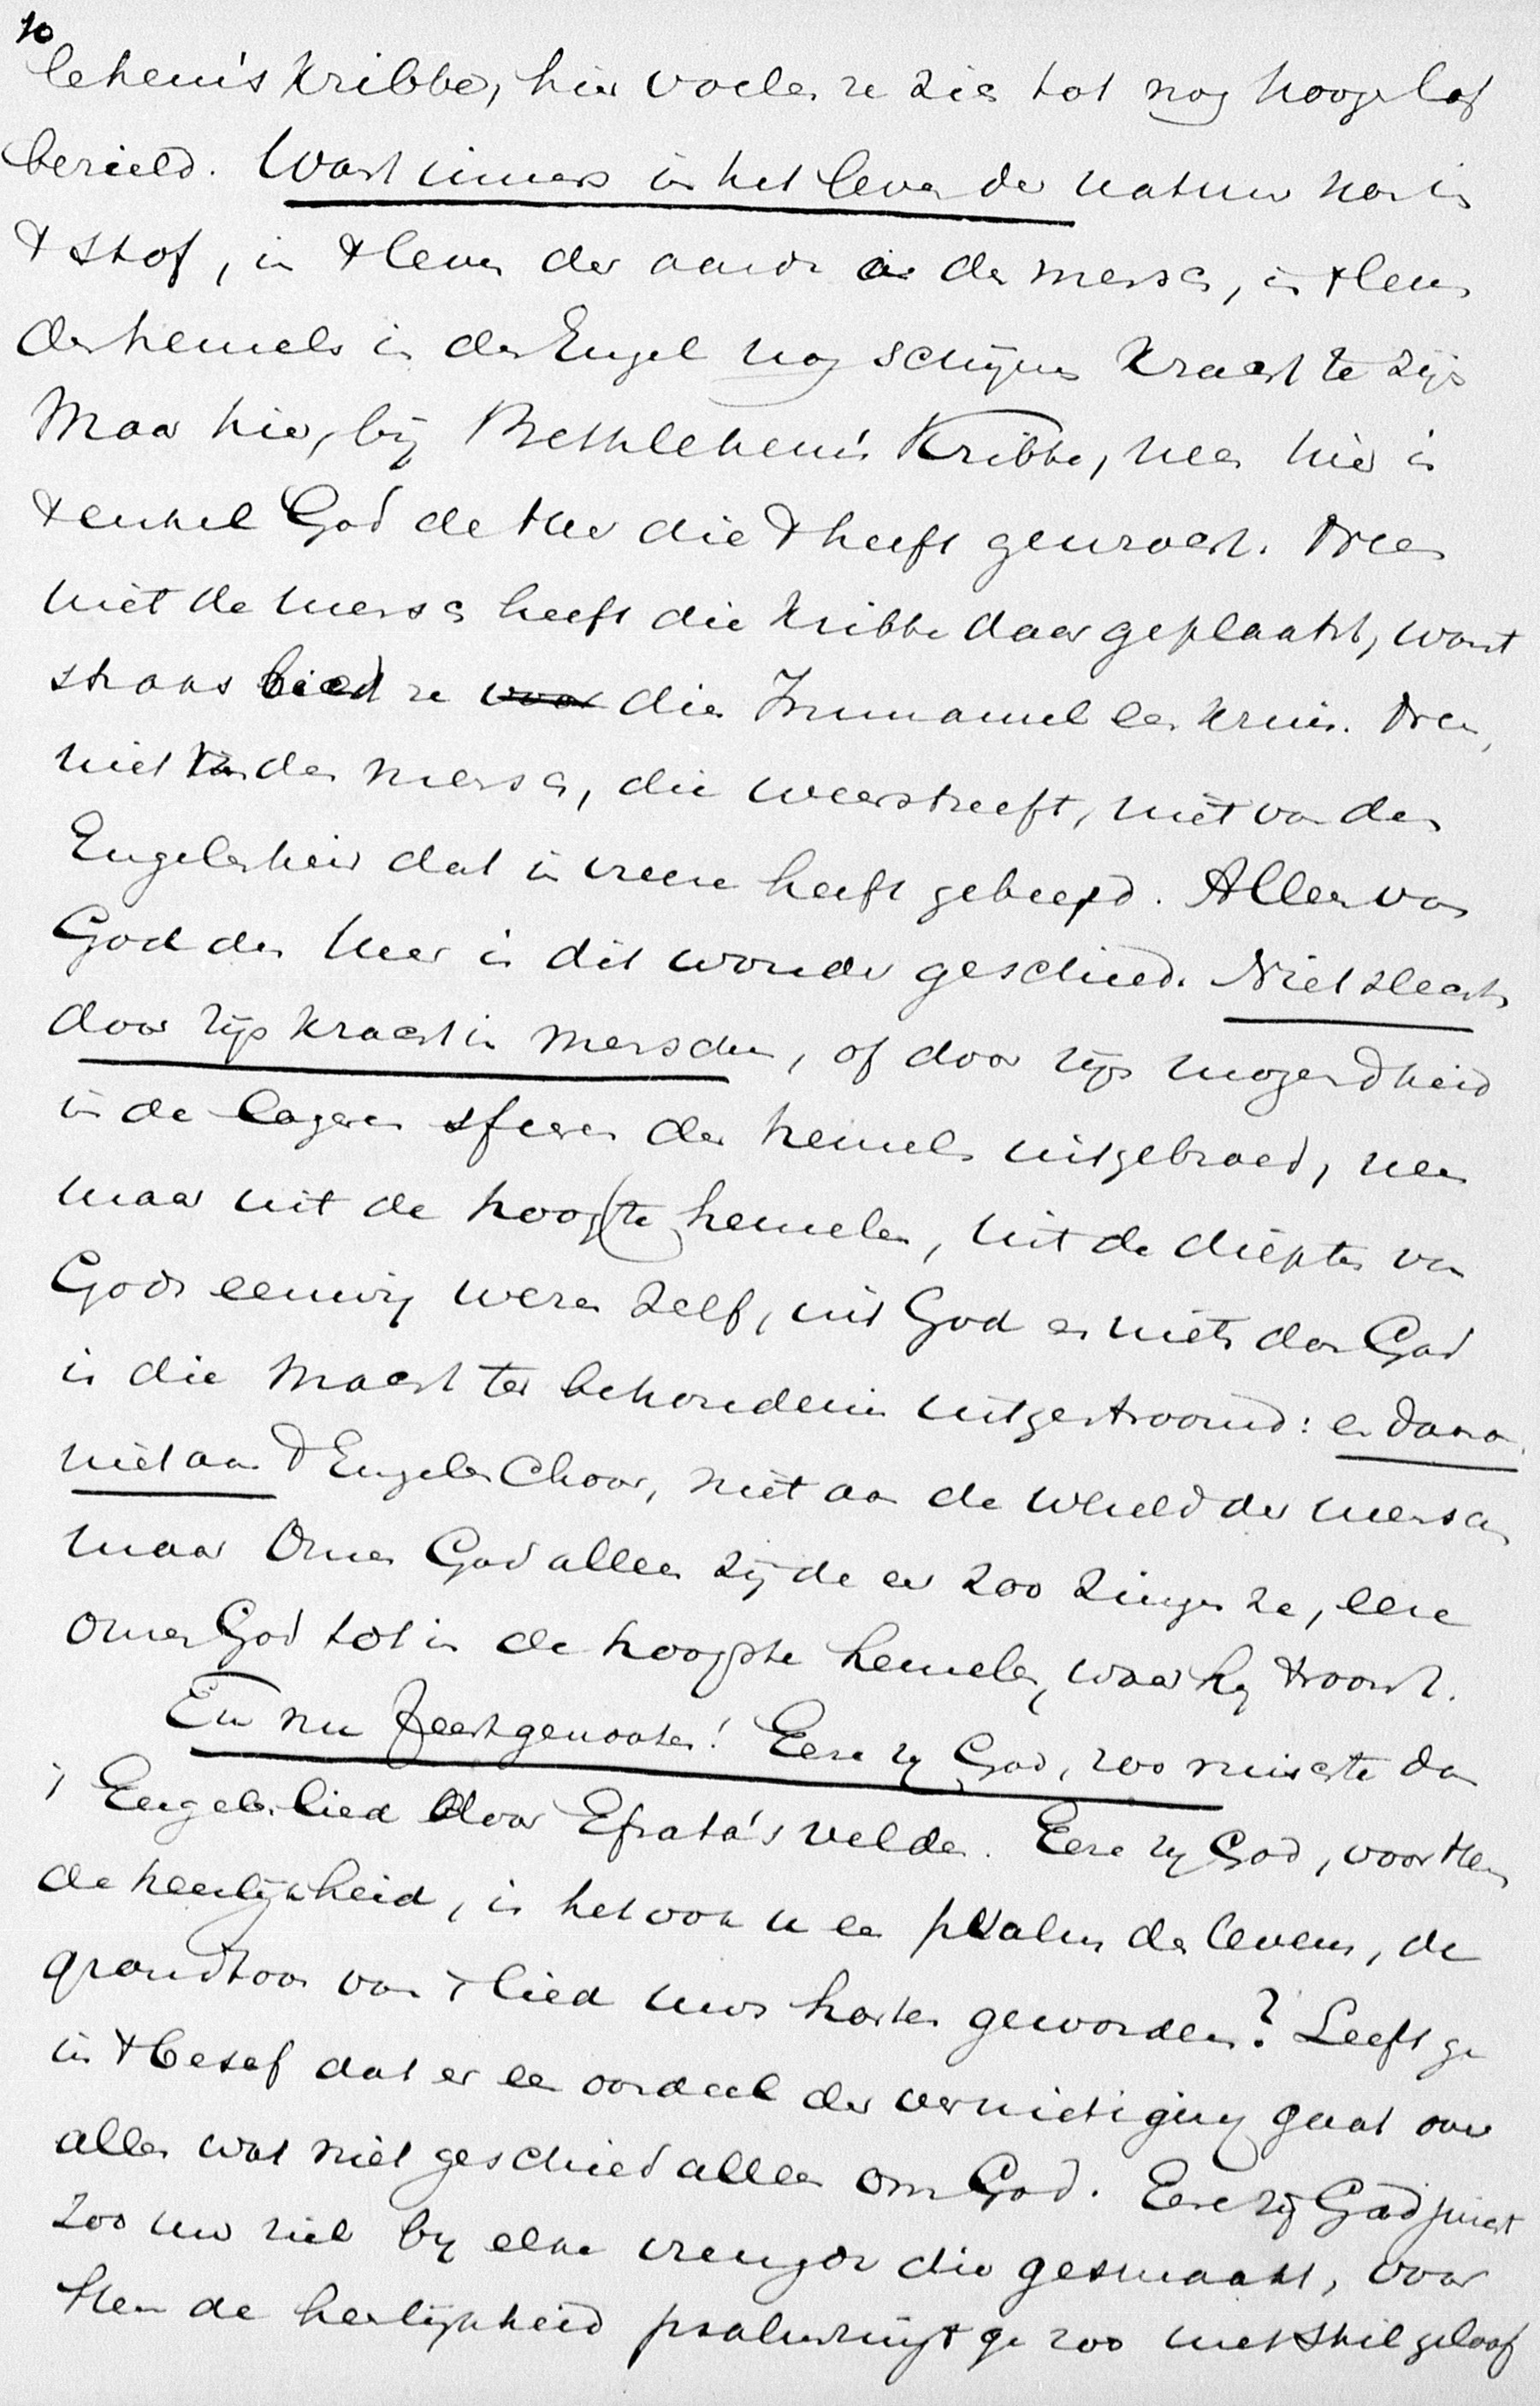 10
lehem's Kribbe, hier voelen ze zich tot nog hooger lof
bezield. Want immers in het leven der natuur kon in
't stof, in 't leven der aarde in den mensch, in 't leven
des hemels in den Engel nog schijn van kracht te zijn
Maar hier, bij Bethlehem's Kribbe, neen hier is
't enkel God de Heer die 't heeft gewrocht. Neen
niet de mensch heeft die Kribbe daar geplaatst, want
straks bied ze dien Immanuel een kruis. Neen,
niet van den mensch, die weerstreeft, niet van den
Engelenheir dat in vreeze heeft gebeefd. Alleen van
God den Heer is dit wonder geschied. Niet slechts
door zijn kracht in menschen, of door zijn mogendheid
in de lagere sferen des hemels uitgebroed, neen
maar uit de hoogste hemelen, uit de diepten van
Gods eeuwig wezen zelf, uit God en niets dan God
is die macht ter behoudenis uitgestroomd: en daarom
niet aan 't Engelen Choor, niet aan de wereld der menschen
maar Onzen God alleen zij de eer zoo zingen ze, eere
onzen God tot in de hoogste hemelen, waar hij troont.
En nu feestgenooten! Eere zij God, zoo ruischte dan
't Engelenlied door Efrata's velden. Eere zij God, voor Hem
de heerlijkheid, is het ook u een psalm des levens, de
grondtoon van 't lied uws harten geworden? Leeft ge
in 't besef dat er een oordeel der vernietiging gaat over
alles wat niet geschied alleen om God. Eere zij God juicht
zoo uw ziel bij elke vreugde die ge smaakt, voor
Hem de heerlijkheid psalmzingt ge zoo met stil geloof